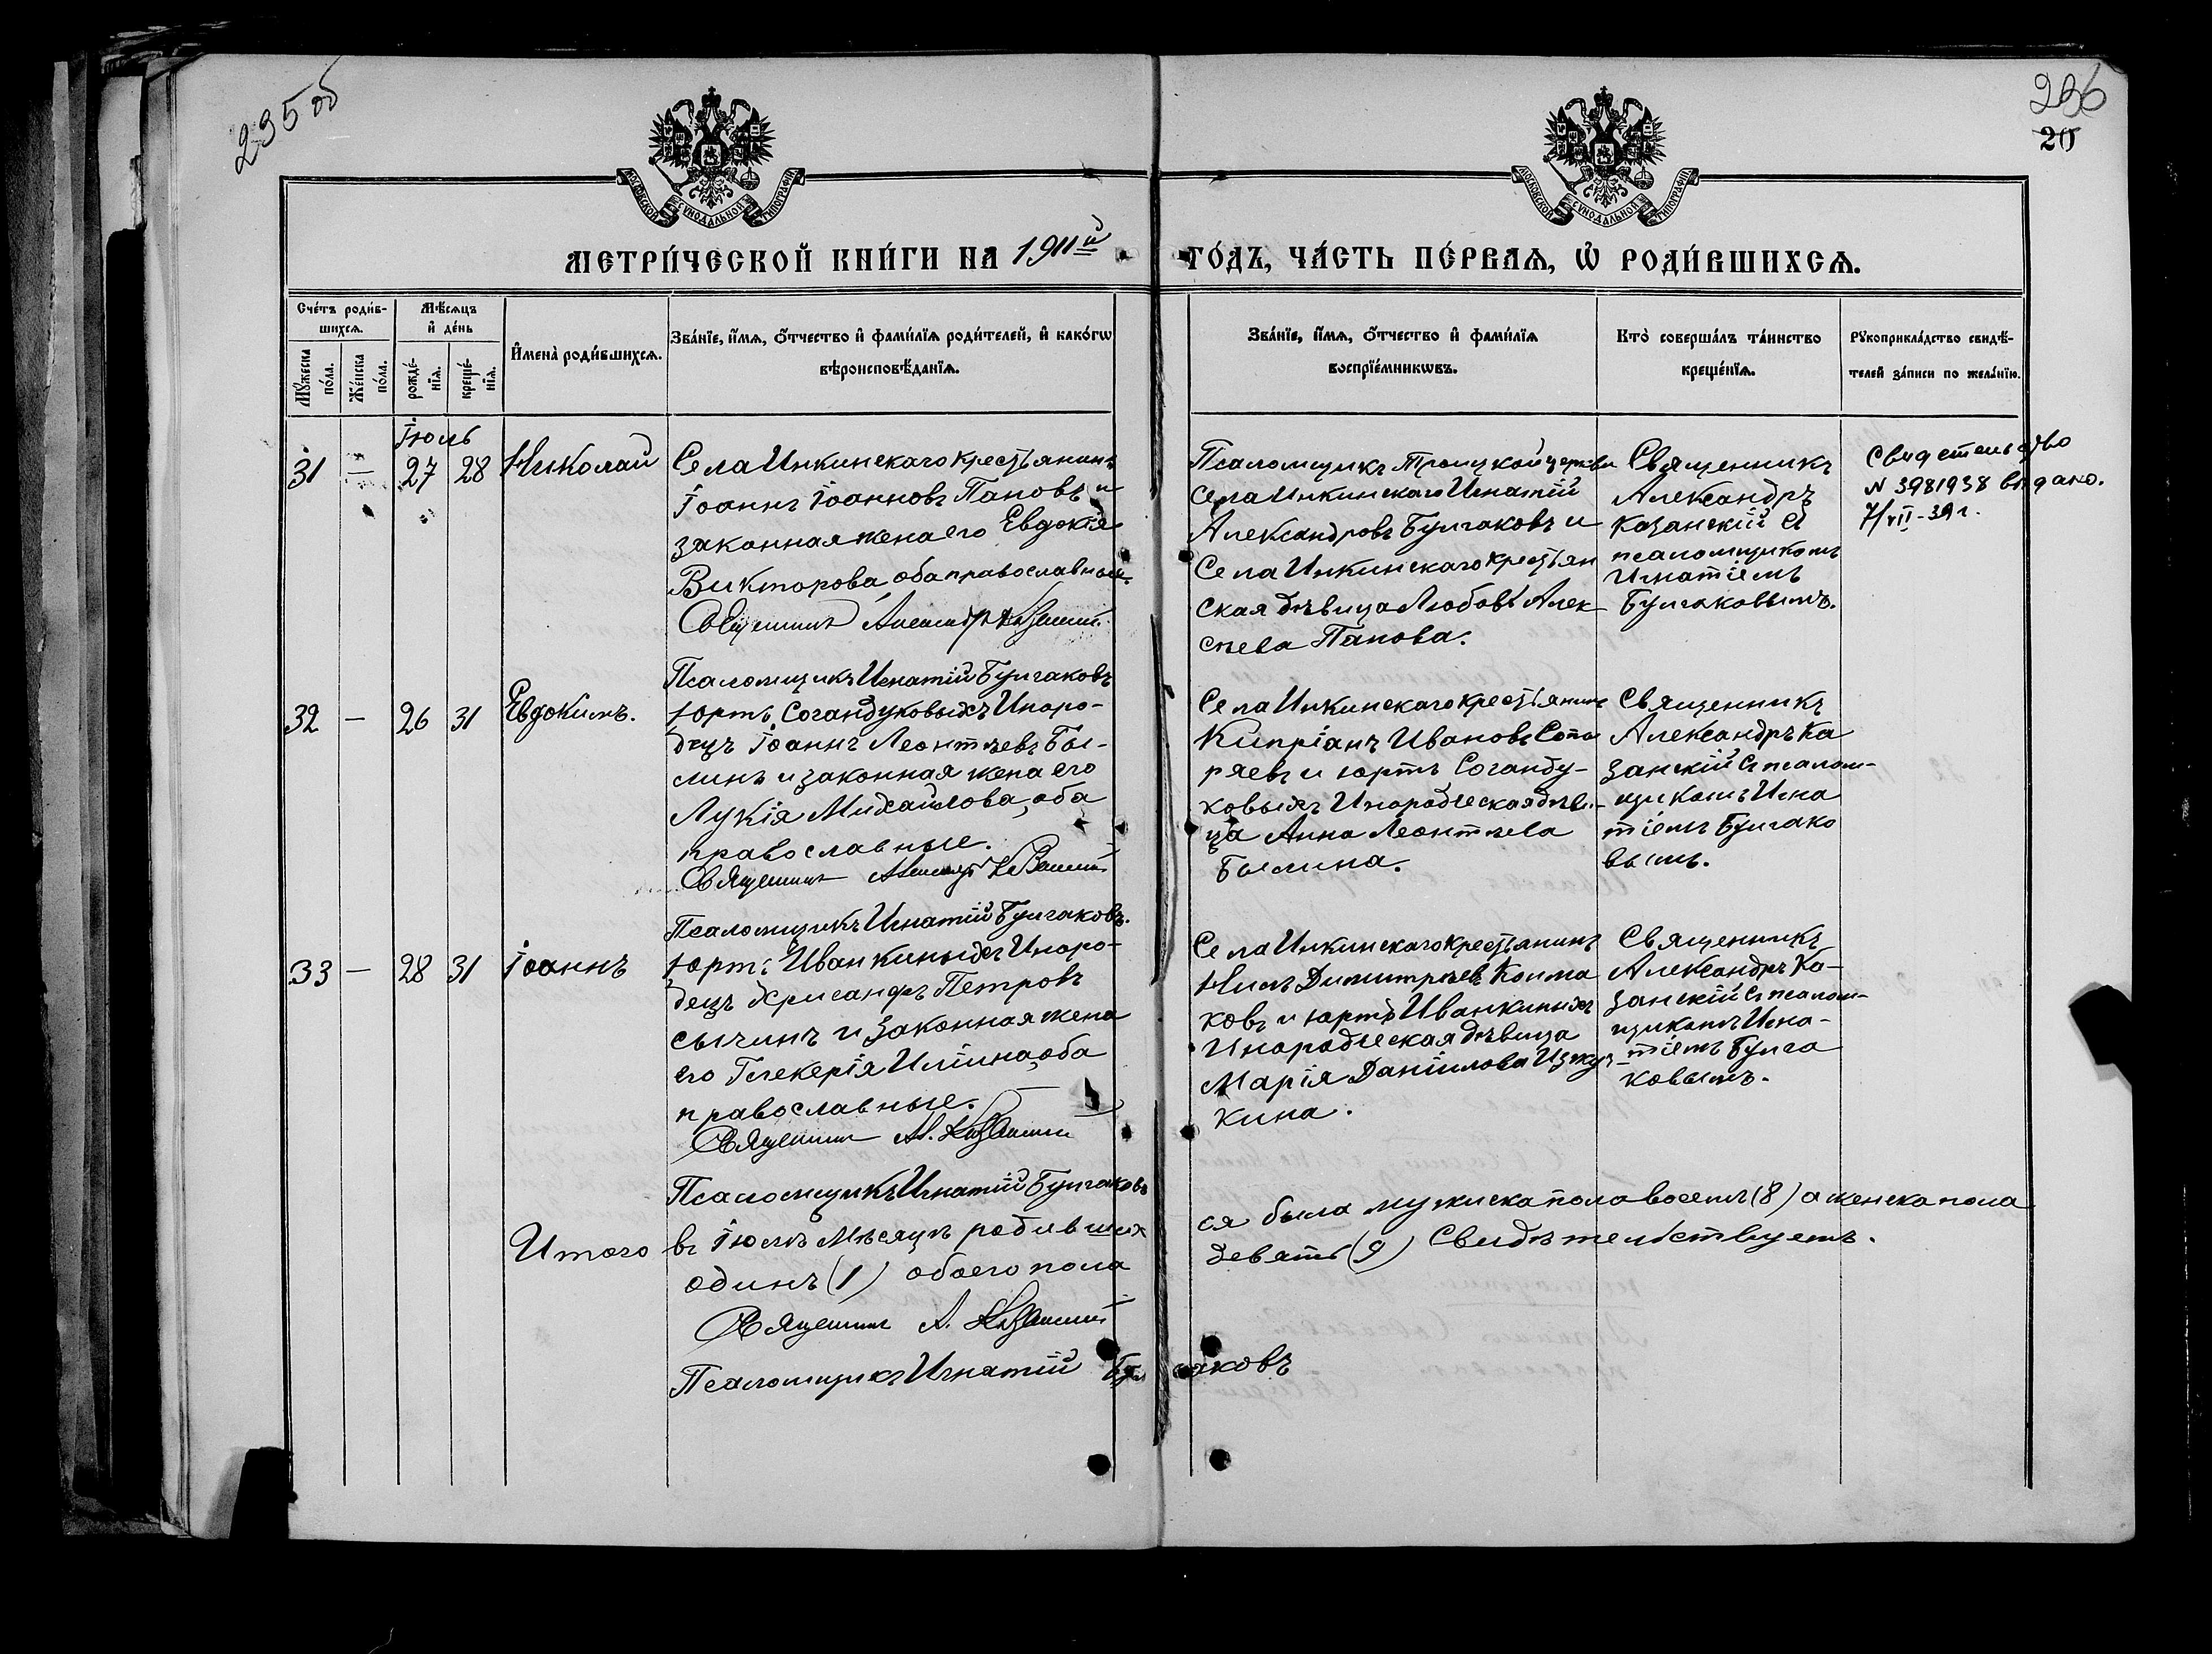 235 об
236
20
МОСКОВСКОЙ СѴНОДАЛЬНОЙ ТИПОГРАФІИ
МОСКОВСКОЙ СѴНОДАЛЬНОЙ ТИПОГРАФІИ
МЕТРИ́ЧЕСКОЙ КНИ́ГИ НА 1911й ГО́ДЪ, ЧА́СТЬ ПЕ́РВАѦ, Ѡ҆ РОДИ́ВШИХСѦ.
Сче́тъ роди́в-
шихсѧ.
Мꙋ́жеска по́ла.
Же́нска по́ла.
Мѣ́сѧцъ
и҆ де́нь
рожде́-нїѧ.
креще́-нїѧ.
И҆мена̀ роди́вшихсѧ.
Зва́нїе, и҆́мѧ, ѻ҆́тчество и҆ фами́лїѧ роди́телей, и҆ како́гѡ
вѣроисповѣ́данїѧ.
Зва́нїе, и҆́мѧ, ѻ҆́тчество и҆ фами́лїѧ
воспрїе́мникѡвъ.
Кто̀ соверша́лъ та́инство
креще́нїѧ.
Рꙋкоприкла́дство свидѣ́-
телей за́писи по жела́нїю.
Іюль
31 — 27 28 Николай
Села Инкинскаго крестьянинъ
Іоаннъ Іоанновъ Пановъ и
законная жена его Евдокія
Викторова, оба православные.
Священникъ Александръ Казанскій
Псаломщикъ Игнатій Булгаковъ
Псаломщикъ Троицкой церкви
села Инкинскаго Игнатій
Александровъ Булгаковъ и
Села Инкинскаго крестьян
ская дѣвица Любовь Алек
сѣева Панова.
Священникъ
Александръ
Казанскій съ
псаломщикомъ
Игнатіемъ
Булгаковымъ.
Свидетельство
N 3981938 выдано.
7/VII-39 г.
32 — 26 31 Евдокимъ.
Юртъ Согандуковыхъ Иноро-
децъ Іоаннъ Леонтьевъ Бы-
линъ и законная жена его
Лукія Михайлова, оба
православные.
Священникъ Александръ Казанскій
Псаломщикъ Игнатій Булгаковъ.
Села Инкинскаго крестьянинъ
Кипріанъ Ивановъ
ряевъ и юртъ Саганду-
ковыхъ Инородческая дѣви-
ца Анна Леонтьева
Былина.
Священникъ
Александръ Ка
занскій съ псалом-
щикомъ Игна
тіемъ Булгако
вымъ.
33 — 28 31 Іоаннъ
Юртъ Иванкиныхъ Иноро-
децъ Хрисанфъ Петровъ
Сычинъ и законная жена
его Гликерія Иліина, оба
православные.
Священникъ Ал. Казанскій
Псаломщикъ Игнатій Булгаковъ
Села Инкинскаго крестьянинъ
Нилъ Димитріевъ Колма
ковъ и юртъ Иванкиныхъ
Инородческая дѣвица
Марія Даніилова
кина.
Священникъ
Александръ Ка-
занскій съ псалом-
щикомъ Игна-
тіемъ Булга
ковымъ.
Итого въ Іюлѣ мѣсяцѣ родивших
ся была мужска пола восемь (8) а женска пола
одинъ (1) обоего пола
девять (9) Свидѣтельствуемъ.
Священникъ А. Казанскій
Псаломщикъ Игнатій Булгаковъ